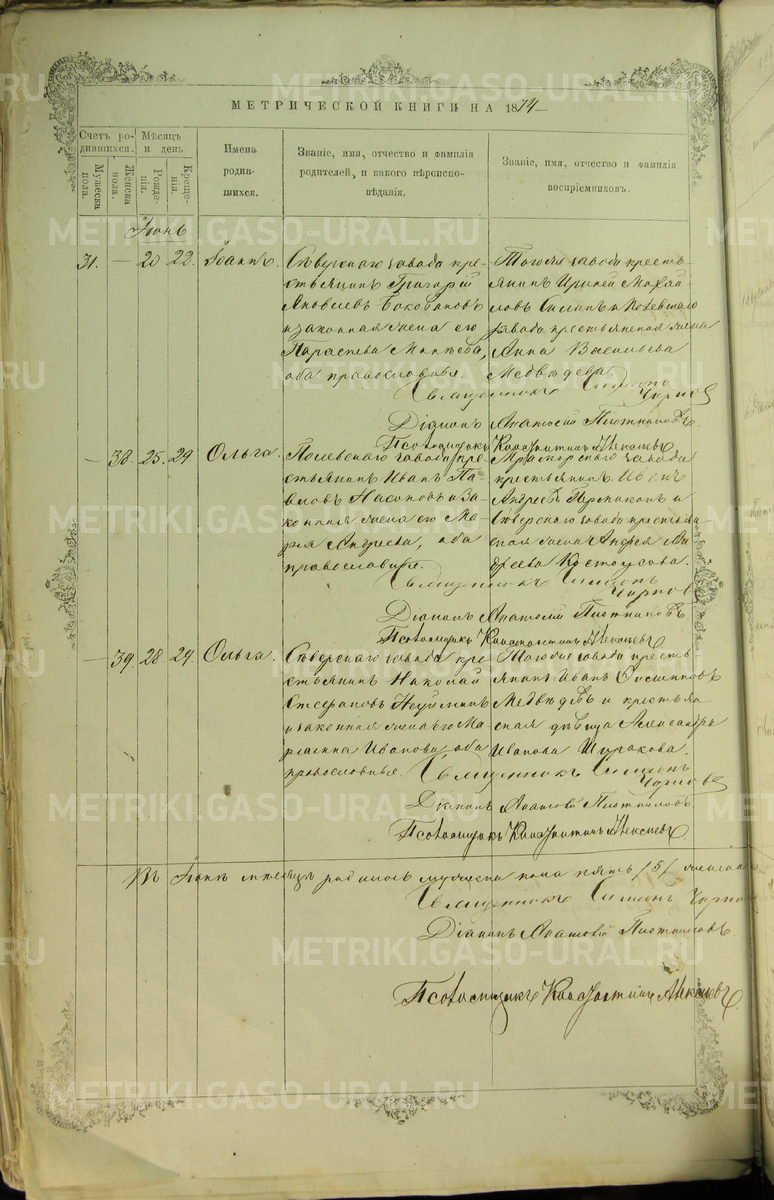 МЕТРИЧЕСКОЙ КНИГИ НА 1874
Счетъ ро-
дившихся.
Мужеска
пола.
Женска
пола.
Мѣсяцъ
и день.
Рожде-
нія.
Креще-
нія.
Имена
родив-
шихся.
Званіе, имя, отчество и фамилія
родителей, и какого вѣроиспо-
вѣданія.
Званіе, имя, отчество и фамилія
воспріемниковъ.
Іюнь
31. — 20 22. Іоаннъ.
Сѣверскаго завода кре-
стьянинъ Григорій
Яковлевъ
и законная жена его
Параскева
оба православные
Тогоже завода кресть-
янинъ
и Полевскаго
завода крестьянская жена
Анна Васильева
Медвѣдева.
Священникъ Симеонъ
Чернов
Діаконъ Анатолій Плотниковъ
Псаломщикъ Константинъ Алексѣевъ
— 38. 25. 29 Ольга.
Полевскаго завода кре-
стьянинъ Иванъ Па-
вловъ Насоновъ и за-
конная жена его Ма-
рія Андреева, оба
православные.
Мраморскаго завода
крестьянинъ
Андреев и
Сѣверскаго завода крестьян-
ская жена Ан-
дреева Костоусова.
Священникъ Симеонъ
Чернов
Діаконъ Анатолій Плотниковъ
Псаломщикъ Константинъ Алексѣевъ
— 39. 28. 29 Ольга.
Сѣверскаго завода кре-
стьянинъ Николай
Стефановъ
и законная жена его Ма-
Иванова, оба
православные.
Тогоже завода кресть-
янинъ Иванъ
Медвѣдевъ и крестьян-
ская дѣвица Александра
Иванова
Священникъ Симеонъ
Чернов
Діаконъ Анатолій Плотниковъ
Псаломщикъ Константинъ Алексѣевъ
Въ Іюнѣ мѣсяцѣ родилось мужеска пола пять /5/ женска
Священникъ Симеонъ Чернов
Діаконъ Анатолій Плотниковъ
Псаломщикъ Константинъ Алексѣевъ
METRIKI.GASO-URAL.RU